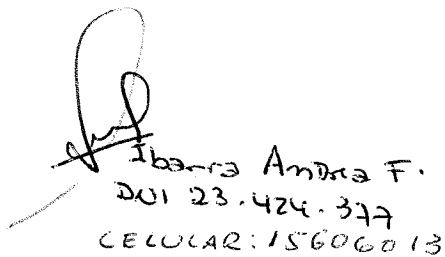 Ibarra Andrea F.
DNI 23.424.377
CELULAR: 15606013